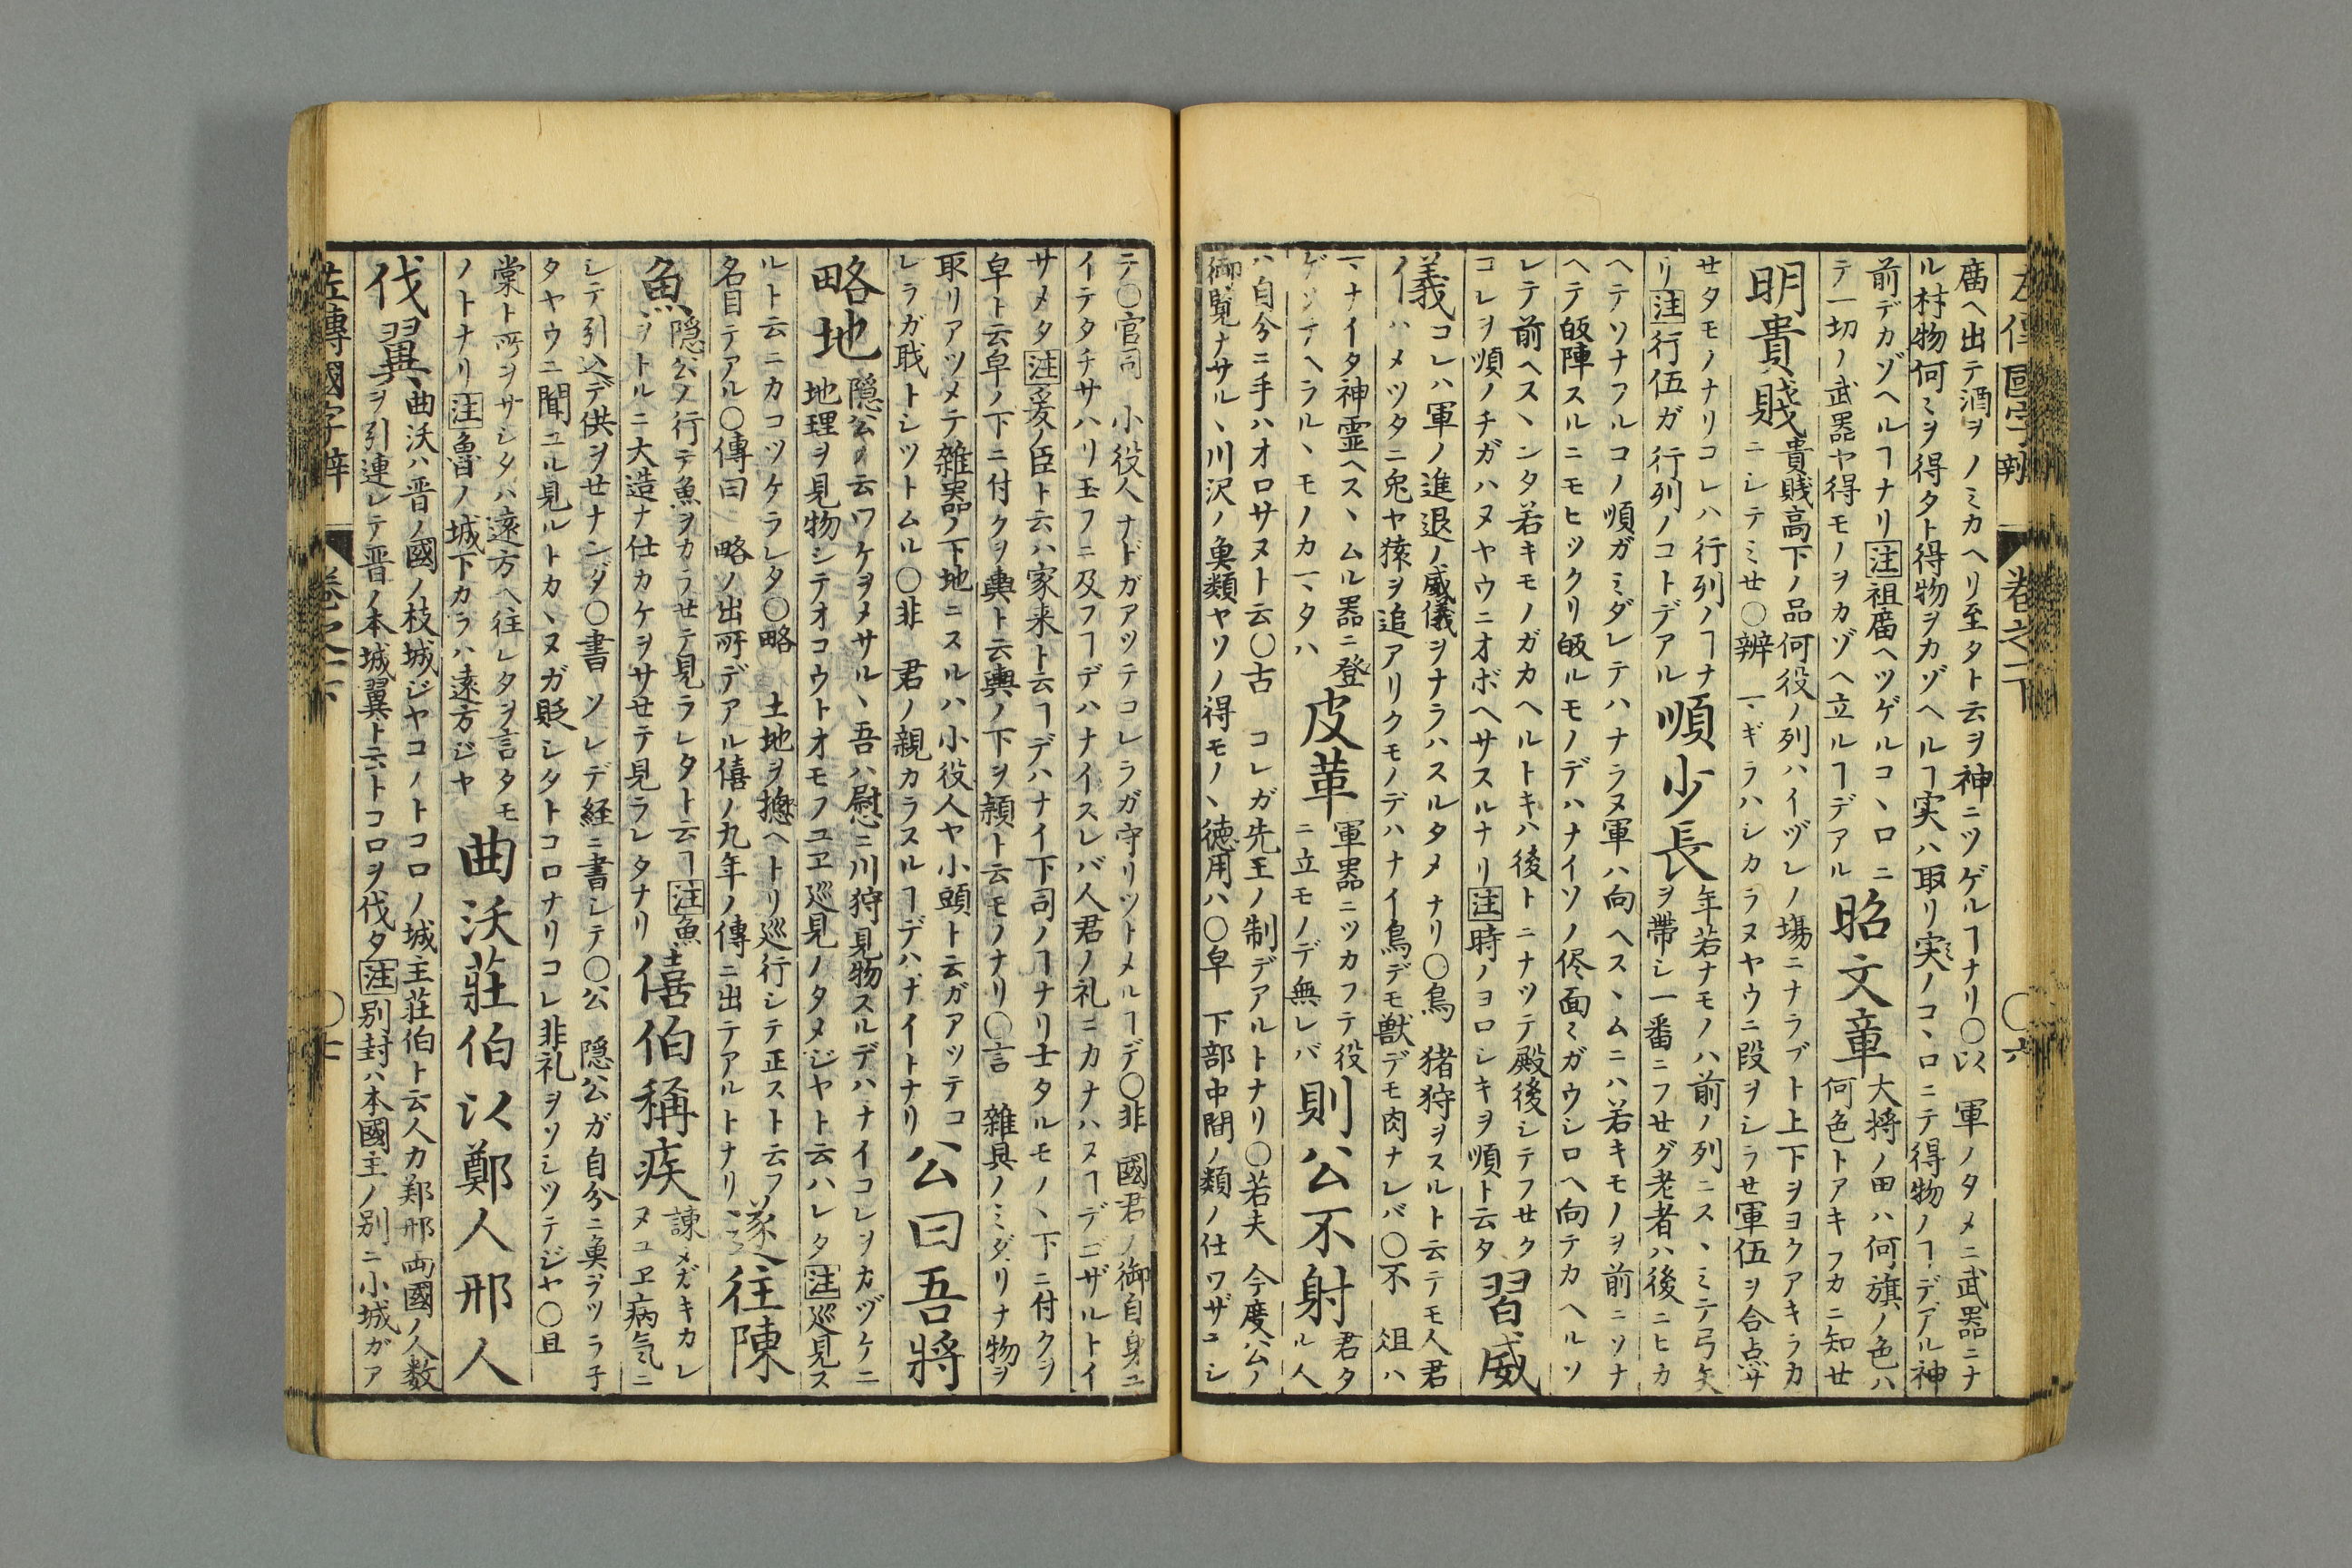 左傳國字辨 卷之一下 〇六
廟ヘ出テ酒ヲノミカヘリ至タト云ヲ神ニツゲルヿナリ〇以 軍ノタメニ武器ニナ
ル材物何ミヲ得タト得物ヲカゾヘルヿ実ハ取リ実ノコヽロニテ得物ノヿデアル神
前デカゾヘルヿナリ注祖廟ヘツゲルコヽロニ
テ一切ノ武器ヤ得モノヲカゾヘ立ルヿデアル
昭文章
大将ノ田ハ何旗ノ色ハ
何色トアキフカニ知セ
明貴賤
貴賤高下ノ品何役ノ列ハイヅレノ場ニナラブト上下ヲヨクアキラカ
ニシテミせ〇辨 マギラハシカラヌヤウニ段ヲシラせ軍伍ヲ合点サ
せタモノナリコレハ行列ノヿナ
リ注行伍ガ行列ノコトデアル
順少長
年若ナモノハ前ノ列ニスヽミテ弓矢
ヲ帯シ一番ニフせグ老者ハ後ニヒカ
ヘテソナフルコノ順ガミダレテハナラヌ軍ハ向ヘスヽムニハ若キモノヲ前ニソナ
ヘテ皈陣スルニモヒツクリ皈ルモノデハナイソノ侭面ミガウシロヘ向テカヘルソ
レテ前ヘスヽンタ若キモノガカヘルトキハ後トニナツテ殿後シテフせク
コレヲ順ノチガハヌヤウニオボヘサスルナリ注時ノヨロシキヲ順ト云タ
習威
儀
コレハ軍ノ進退ノ威儀ヲナラハスルタメナリ〇鳥 猪狩ヲスルト云テモ人君
ハメツタニ兎ヤ猿ヲ追アリクモノデハナイ鳥デモ獣デモ肉ナレバ〇不 俎ハ
マナイタ神霊ヘスヽムル器ニ登
ゲソナヘラルヽモノカマタハ
皮革
軍器ニツカフテ役
ニ立モノデ無レバ
則公不射
君タ
ル人
ハ自分ニ手ハオロサヌト云〇古 コレガ先王ノ制デアルトナリ〇若夫 今度公ノ
御覧ナサルヽ川沢ノ魚類ヤソノ得モノヽ徳用ハ〇皁 下部中間ノ類ノ仕ワザユシ
テ〇官司 小役人ナドガアツテコレラガ守リツトメルヿデ〇非 國君ノ御自身ニ
イテタチサハリ玉フニ及フヿデハナイスレバ人君ノ礼ニカナハスヿデゴザルトイ
サメタ注爰ノ臣ト云ハ家来ト云ヿデハナイ下司ノヿナリ士タルモノヽ下ニ付クヲ
皁ト云皁ノ下ニ付クヲ輿ト云輿ノ下ヲ頼ト云モノナリ〇言 雑具ノミダリナ物ヲ
取リアツメテ雑器ノ下地ニスルハ小役人ヤ小頭ト云ガアツテコ
レラガ戝トシツトムル〇非 君ノ親カラスルヿデハナイトナリ
公曰吾將
略地
隠公ノ云ワケヲメサルヽ吾ハ慰ニ川狩見物スルデハナイコレヲカヅケニ
地理ヲ見物シテオコウトオモフユヱ巡見ノタメジヤト云ハレタ注巡見ス
ルト云ニカコツケラレタ〇略 土地ヲ摠ヘトリ巡行シテ正スト云フ
名目テアル〇傳曰 略ノ出所デアル僖ノ九年ノ傳ニ出テアルトナリ
遂往陳
魚
隠公ノ行テ魚ヲカラせテ見ラレタト云ヿ注魚
ヲトルニ大造ナ仕カケヲサせテ見ラレタナリ
僖伯稱疾
諫メガキカレ
ヌユヱ病気ニ
シテ引込デ供ヲせナンダ〇書 ソレデ経ニ書シテ〇公 隠公ガ自分ニ魚ヲツラ子
タヤウニ聞ユル見ルトカヽヌガ貶シタトコロナリコレ非礼ヲソシツテジヤ〇且
棠ト所ヲサシタハ遠方ヘ往レタヲ言タモ
ノトナリ注魯ノ城下カラハ遠方ジヤ
曲沃莊伯以鄭人邢人
伐翼
曲沃ハ晋ノ國ノ枝城ジヤコノトコロノ城主荘伯ト云人カ鄭邢両國ノ人数
ヲ引連レテ晋ノ本城翼ト云トコロヲ伐タ注別封ハ本國主ノ別ニ小城ガア
左傳國字辨 卷之一下 〇七